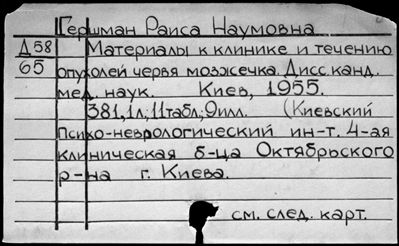 Гершман Раиса Наумовна.
Д58
65
Материалы к клинике и течению
опухолей червя мозжечка. Дисс. канд.
мед. наук. Киев, 1955.
381,1л; 11табл; 9илл. (Киевский
Психо-неврологический ин-т. 4-ая
клиническая б-ца Октябрьского
р-на г. Киева.
см. след. карт.